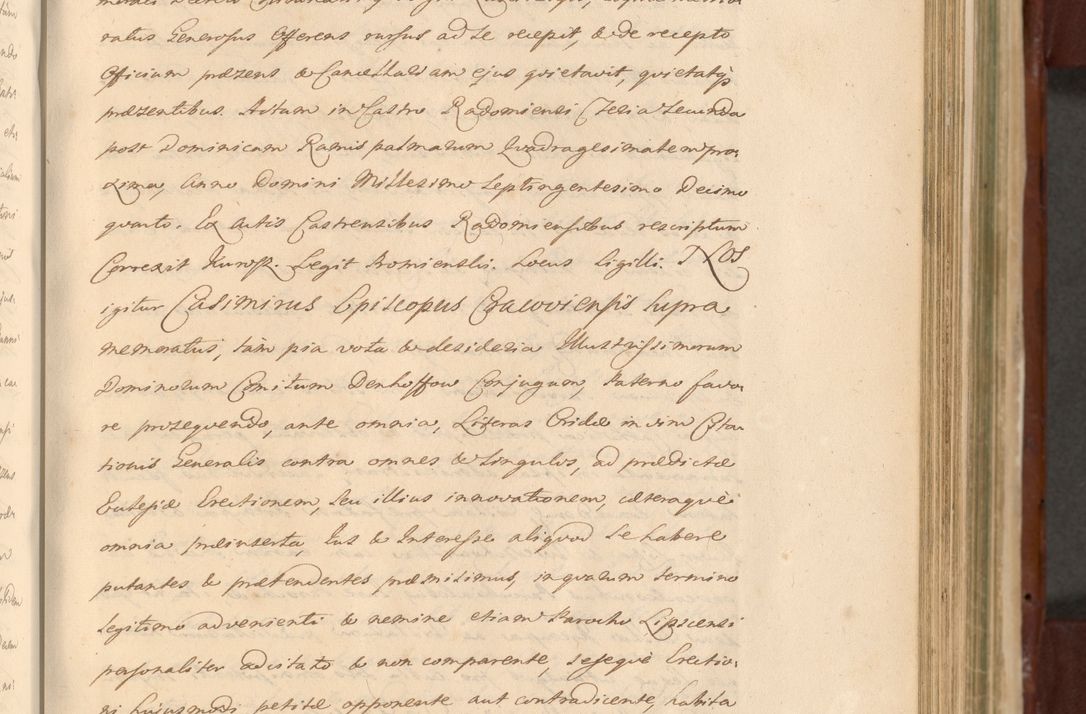 ratus Generosus Offerens rursus ad se recepit, & de recepto
Officium præzens & Cancellariam ejus quietavit, quietatq3
præzentibus. Actum in Castro Radomiensi Feria Secunda
post Dominicam Ramis palmarum Quadragesimalem pro-
xima, Anno Domini Millesimo Septingentesimo Decimo
quarto. Ex Actis Castrensibus Radomiensibus rescriptum
Correxit Legit Locus Sigilli. NOS
igitur Casimirus Episcopus Cracoviensis supra
memoratus, tàm pia vota & desideria Illustrissimorum
Dominorum Comitum Denhoffow Conjugum, Paterno favo-
re prozequendo, ante omnia, Literas Cridæ in vim Cita-
tionis Generalis contra omnes & Singulos, ad prædictæ
Ecclesiæ Erectionem, seu illius innovationem, cæteraquè
omnia præinserta, Ius & Interesse aliquod se habere
putantes & prætendentes præmisimus, in quarum termino
legitimo advenienti & nemine etiam Parocho Lipscensi
personaliter adcitato & non comparente, seseque Erectio-
ni hujusmodi petitæ opponente aut contradicente, habita